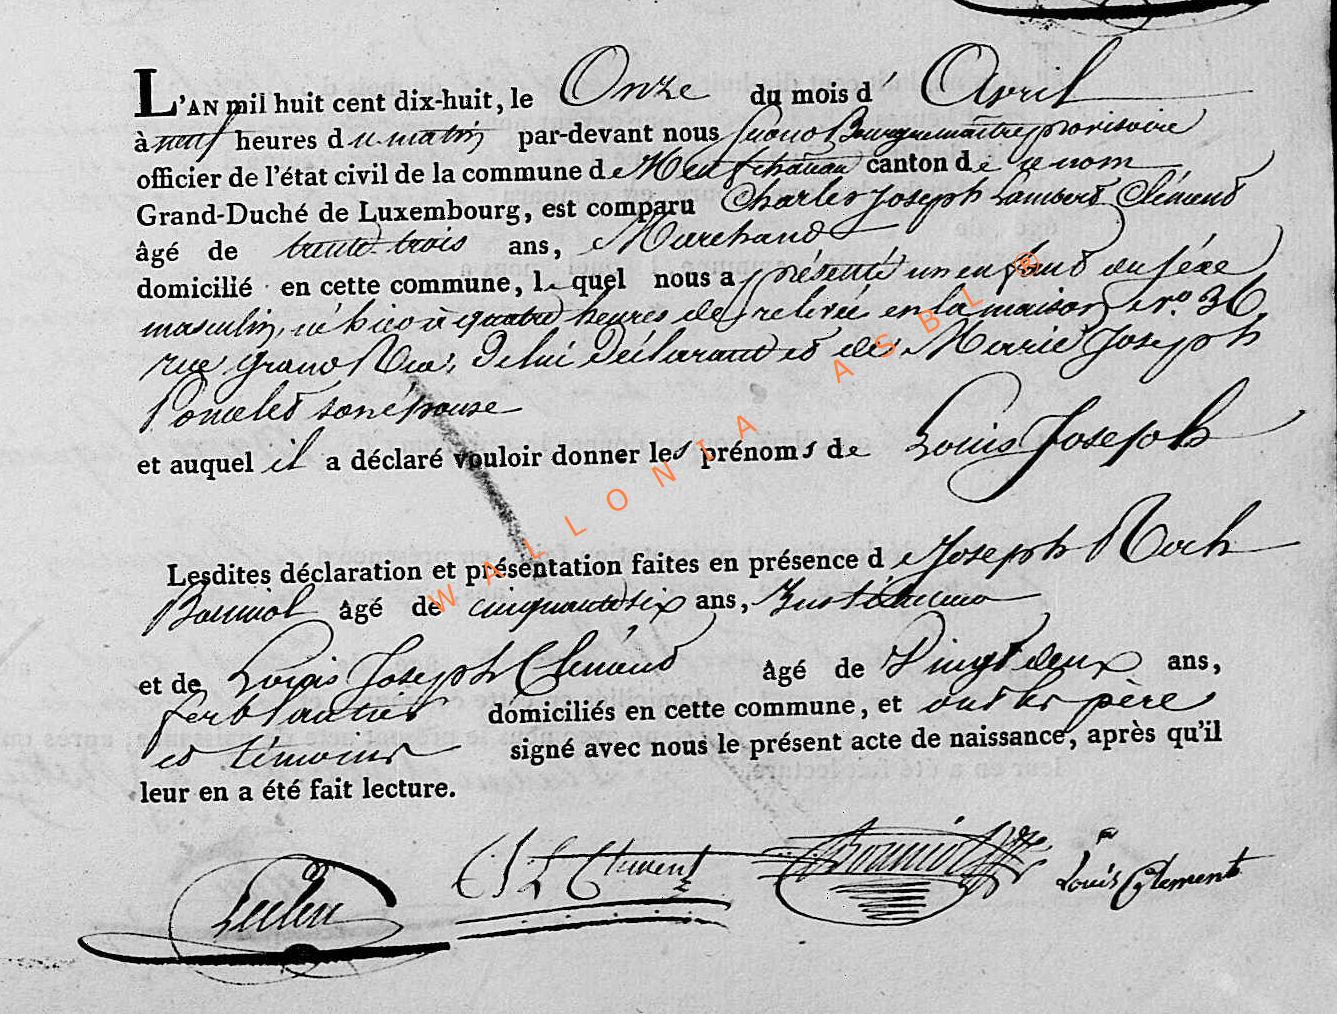 L'AN mil huit cent dix-huit, le Onze du mois d'Avril
à neuf heures du matin par-devant nous Bourguemaître provisoire
officier de l'état civil de la commune de Neufchateau canton de ce nom
Grand-Duché de Luxembourg, est comparu Charles Joseph Lambert Clément
âgé de trente trois ans, Marchand
domicilié en cette commune, lequel nous a présenté un enfant du sexe
masculin, né hier à quatre heures de relevée en la maison nro. 36
rue grand Rue, de lui déclarant et de Marie Joseph
Poncelet son épouse
et auquel il a déclaré vouloir donner les prénoms de Louis Joseph
Lesdites déclaration et présentation faites en présence de Joseph Roch
Bonniol âgé de cinquante six ans,
et de Louis Joseph Clément âgé de Vingt deux ans,
ferblantier domiciliés en cette commune, et ont les père
et témoins signé avec nous le présent acte de naissance, après qu'il
leur en a été fait lecture.
C J L Clement
Louis Clement
WALLONIA ASBL ®